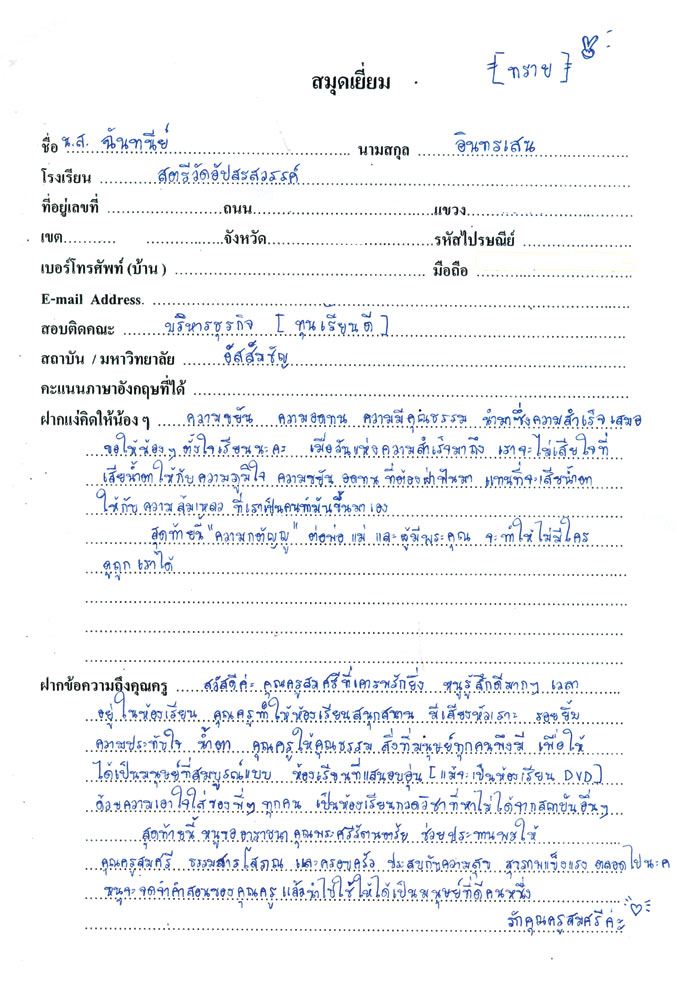 [ทราย]
สมุดเยี่ยม
ชื่อ น.ส. ฉันทนีย์ นามสกุล อินทรเสน
โรงเรียน สตรีวัดอัปสรสวรรค์
ที่อยู่เลขที่ ถนน แขวง
เขต จังหวัด รหัสไปรษณีย์
เบอร์โทรศัพท์ (บ้าน) มือถือ
E-mail Address.
สอบติดคณะ บริหารธุรกิจ [ทุนเรียนดี]
สถาบัน / มหาวิทยาลัย อัสสัมชัญ
คะแนนภาษาอังกฤษที่ได้
ฝากแง่คิดให้น้อง ๆ ความขยัน ความอดทน ความมีคุณธรรม นำมาซึ่งความสำเร็จเสมอ
ขอให้น้องๆ ตั้งใจเรียนนะคะ เมื่อวันแห่งความสำเร็จมาถึง เราจะไม่เสียใจที่
เสียน้ำตาให้กับความภูมิใจ ความขยัน อดทน ที่ต้องฝ่าฟันมา แทนที่จะเสียน้ำตา
ให้กับความล้มเหลว ที่เราเป็นคนทำมันขึ้นมาเอง
สุดท้ายนี้ "ความกตัญญู" ต่อพ่อ แม่ และผู้มีพระคุณ จะทำให้ไม่มีใคร
ดูถูกเราได้
ฝากข้อความถึงคุณครู สวัสดีค่ะ คุณครูสมศรีที่เคารพรักยิ่ง หนูรู้สึกดีมากๆ เวลา
อยู่ในห้องเรียน คุณครูทำให้ห้องเรียนสนุกสนาน มีเสียงหัวเราะ รอยยิ้ม
ความประทับใจ น้ำตา คุณครูให้คุณธรรม สิ่งที่มนุษย์ทุกคนพึงมี เพื่อให้
ได้เป็นมนุษย์ที่สมบูรณ์แบบ ห้องเรียนที่แสนอบอุ่น [แม้จะเป็นห้องเรียน DVD]
ด้วยความเอาใจใส่ของพี่ๆ ทุกคน เป็นห้องเรียนกวดวิชาที่หาไม่ได้จากสถาบันอื่นๆ
สุดท้ายนี้ หนูขออาราธนาคุณพระศรีรัตนตรัย ช่วยประทานพรให้
คุณครูสมศรี ธรรมสารโสภณ และครอบครัว ประสบกับความสุข สุขภาพแข็งแรง ตลอดไปนะค
หนูจะจดจำคำสอนของคุณครู แล้วนำไปใช้ให้ได้เป็นมนุษย์ที่ดีคนหนึ่ง
รักคุณครูสมศรีค่ะ